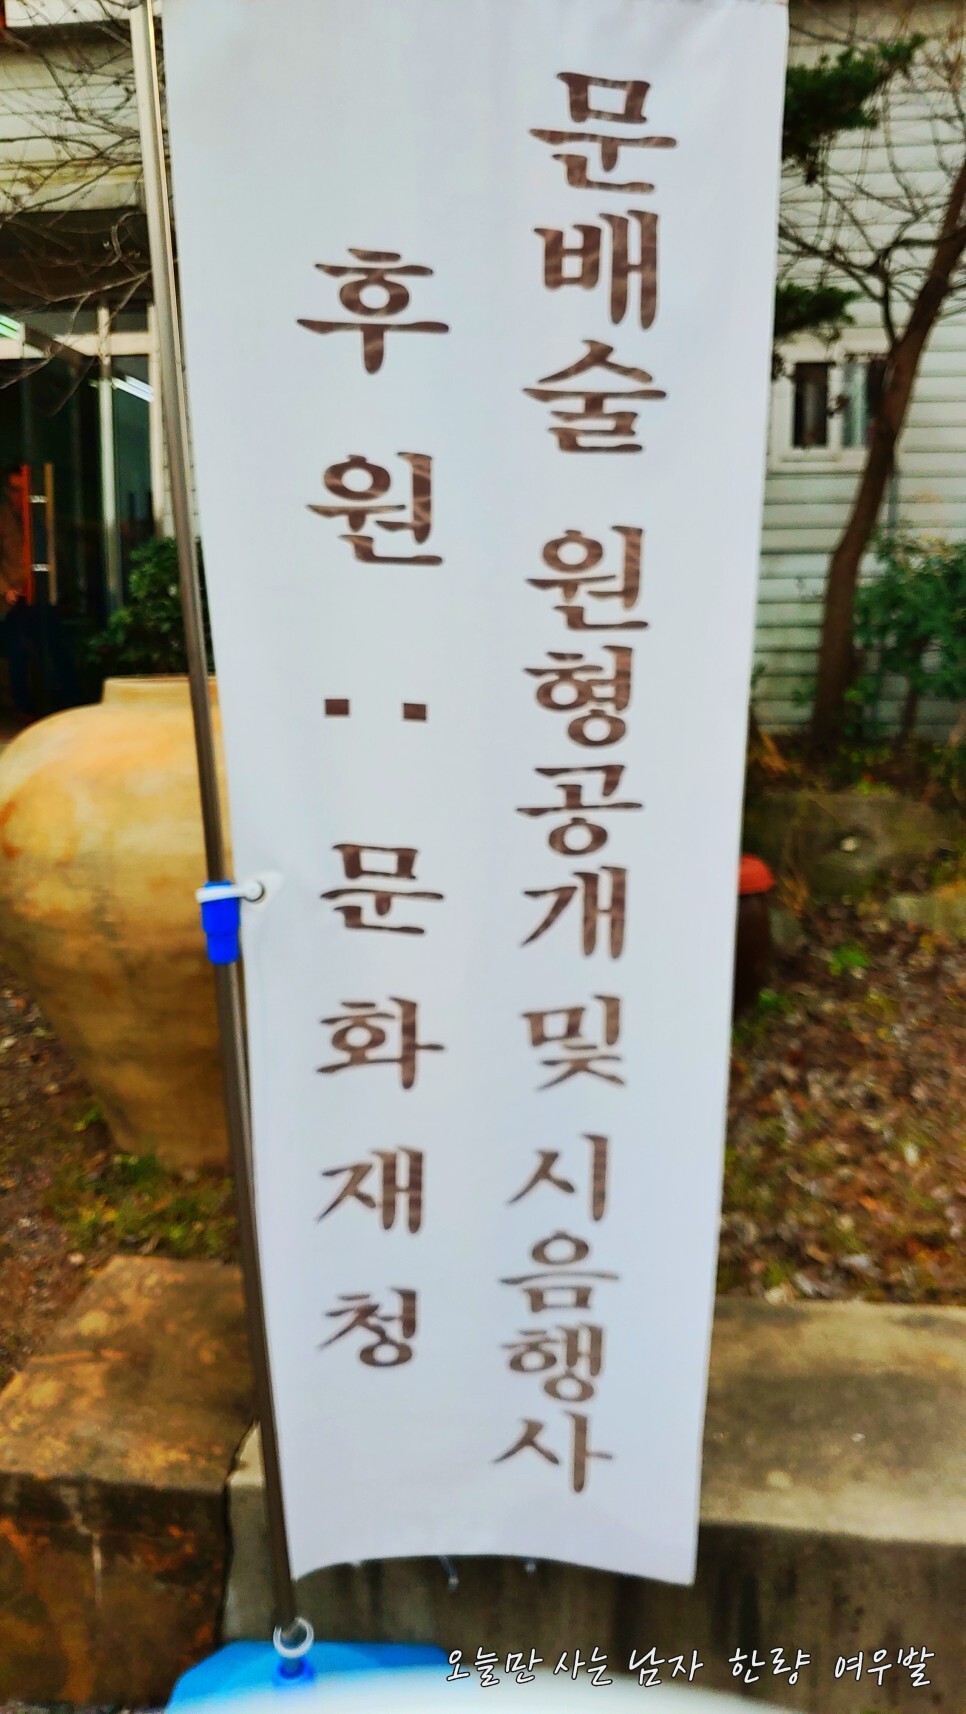 문배술 원형공개 및 시음행사
후원 : 문화재청
오늘만 사는 남자 한량 여우발